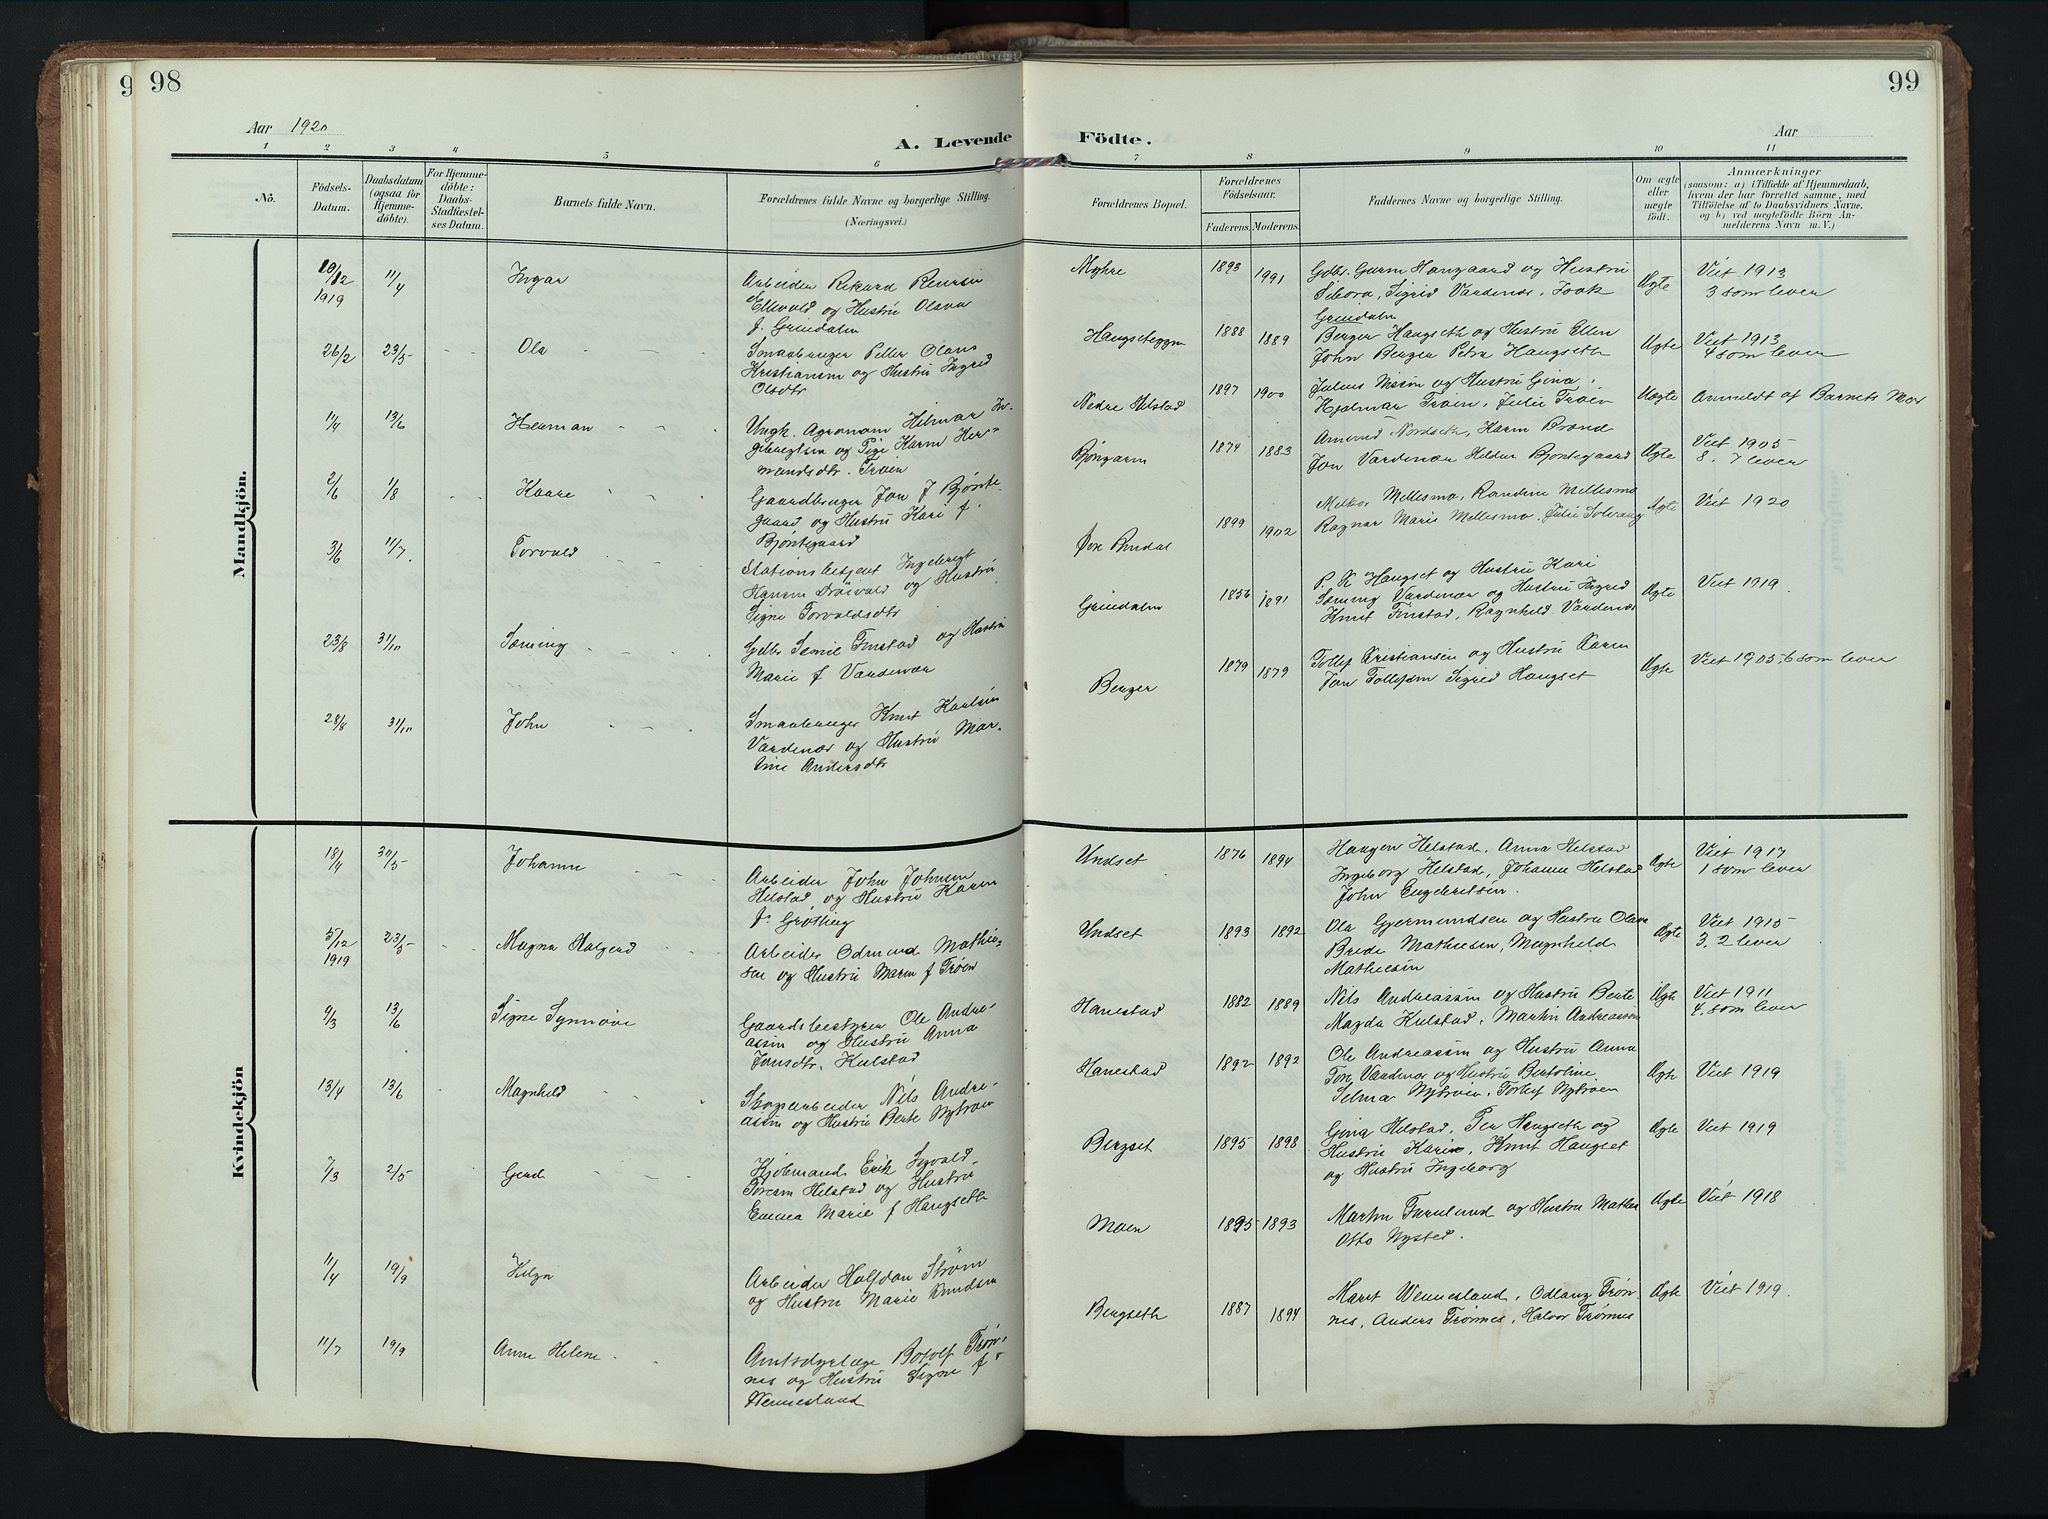 9 98
99
Aar 1920
A. Levende
Födte.
Aar
1 2 3 4 5 6 7 8 9 10 11
No.
Födsels-Datum.
Daabsdatum (ogsaa for Hjemmedöbte).
For Hjemmedöbte: Daabs-Stadfæstelses Datum.
Barnets fulde Navn.
Forældrenes fulde Navne og borgerlige Stilling.
(Næringsvei.)
Forældrenes Bopæl.
Forældrenes Födselsaar.
Faderens. Moderens.
Faddernes Navne og borgerlige Stilling.
Om ægte eller uægte födt.
Anmærkninger
(saasom: a) i Tilfælde af Hjemmedaab, hvem der har forrettet samme, med Tilföielse af to Daabsvidners Navne, og b) ved uægtefödte Börn Anmelderens Navn m.V.)
Mandkjön.
20/12 1919 11/4 Ingar
Arbeider Rikard
Ellevold og Hustru Olava
f. Grindalen
Myhre 1893 1991
og Hustru
Sigrid Vardenær,
Grindalen
Ægte
Viet 1913
3 som lever
26/2 23/5 Ola
Smaabruger Petter Olaus
Kristiansen og Hustru Ingrid
Olsdtr
1888 1889
Berger Haugseth og Hustru Ellen
John Berger Petra Haugseth
Ægte
Viet 1913
4 som lever
11/4 13/6 Herman
Ungk. Agronom Hilmar In-
gebregtsen og Pige Karen Her-
mandsdtr. Trøen
Nedre Helstad 1897 1900
Julius og Hustru Gina,
Hjalmar Trøen, Julie Trøen
Uægte
Anmeldt af Barnets Mor
2/6 1/8 Kaare
Gaardbruger Jon J Bjønte-
gaard og Hustru Kari f.
Bjøntegaard
1874 1883
Amund Nordseth, Karen
Jon Vardenær Hilda Bjøntegaard
Ægte
Viet 1905
8. 7 lever
3/6 11/7 Torvald
Stationsbetjent Ingebrigt
Hansen og Hustru
Signe Torvaldsdtr
1899 1902
Melkor Mellesmo, Randine Mellesmo
Ragnar Marie Mellesmo, Julie Solvang
Ægte
Viet 1920
23/8 31/10 Sæming
Gdbr Finstad og Hustru
Marie f Vardenær
Grindalen 1856 1891
P. K Haugset og Hustru Kari
Sæming Vardenær og Hustru Sigrid
Knut Finstad, Ragnhild Vardenær
Ægte
Viet 1919
28/8 31/10 John
Smaabruger Knut Karlsen
Vardenær og Hustru Mar-
tine Andersdtr
Berger 1879 1879
Tollef Kristiansen og Hustru Karen
Jon Tollefsen Sigrid Haugset
Ægte
Viet 1905. 6 som lever
Kvindekjön
18/4 30/5 Johanne
Arbeider John Johnsen
Helstad og Hustru Karen
f. Grøtting
Undset 1876 1894
Haagen Helstad, Anna Helstad
Ingeborg Helstad, Johanna Helstad
John Engebretsen.
Ægte
Viet 1917
1 som lever
5/12 1919 23/5 Magna Aalgerd
Arbeider Odmund Mathie-
sen og Hustru Maren f Trøen
Undset 1893 1892
Ola Gjermundsen og Hustru Olava
Brede Mathiesen, Magnhild
Mathiesen
Ægte
Viet 1915
3, 2 lever
9/3 13/6 Signe Synnøve
Gaardsbestyrer Ole Andre-
assen og Hustru Anna
Jonsdtr. Kulstad
Hanestad 1882 1889
Nils Andreassen og Hustru Berte
Magda Kulstad, Martin Andreassen
Ægte
Viet 1911
4. som lever
13/4 13/6 Magnhild
Skogarbeider Nils Andre-
assen og Hustru Berte Nytrøen
Hanestad 1892 1892
Ole Andreassen og Hustru Anna
Tore Vardenær og Hustru Bertoline
Selma Nytrøen, Torleif Nytrøen
Ægte
Viet 1919
7/3 2/5 Gerd
Kjøbmand Erik Sigvald
Toresen Helstad og Hustru
Emma Marie f Haugseth
Bergset 1895 1898
Gina Helstad, Per Haugseth og
Hustru Karin, Knut Haugset
og Hustru Ingeborg
Ægte
Viet 1919
11/4 19/9
Arbeider Halfdan Strøm
og Hustru Marie Knudsen
Moen 1895 1893
Martin Furulund og Hustru Mathea
Otto Nysted.
Ægte
Viet 1918
11/7 19/9 Anne Helene
Amtsdyrlæge Botolf Trøn-
nes og Hustru Signe f
Wennesland
Bergseth 1887 1894
Marit Wennesland, Odlaug Trøn-
nes, Anders Trønnes, Halvor Trønnes
Ægte
Viet 1919.